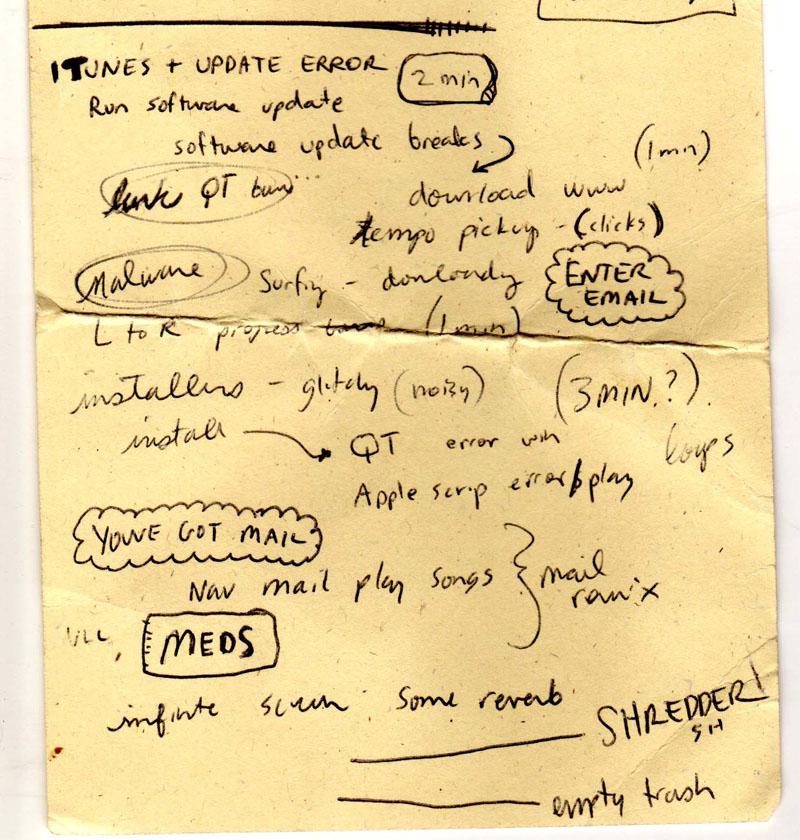 ITUNES + UPDATE ERROR 2 min
Run software update
software update breaks
(1min)
QT
download www
tempo pickup - (clicks)
Malware
Surfing - donloady
ENTER
EMAIL
L to R progress (1min)
installers - glitchy (noisy) (3MIN.?).
install QT error win
loops
Apple scrip error/play
YOUVE GOT MAIL
Nav mail play songs
mail
remix
MEDS
infinte some reverb
SHREDDER!
SH
empty trash